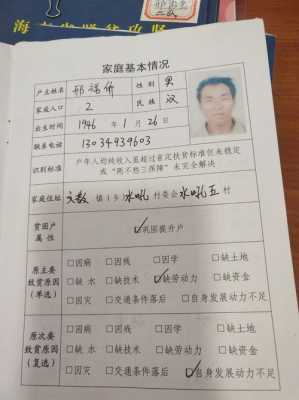 海南省脱贫攻坚
家庭基本情况
户主姓名 邢福侨 性别 男
家庭人口 2 民族 汉
出生时间 1946年1月26日
联系电话 13034939603
识别标准 户年人均纯收入虽超过省定扶贫标准但未稳定
或“两不愁三保障”未完全解决
家庭住址 文教 镇(乡) 水吼 村委会 水吼五 村
贫困户
属性 ☑巩固提升户
原主要
致贫原因
(单选) □因病 □因残 □因学 □缺土地
□缺水 □缺技术 ☑缺劳动力 □缺资金
□因灾 □交通条件落后 □自身发展动力不足
原次要
致贫原因
(复选) □因病 □因残 □因学 □缺土地
□缺水 □缺技术 □缺劳动力 □缺资金
□因灾 □交通条件落后 ☑自身发展动力不足